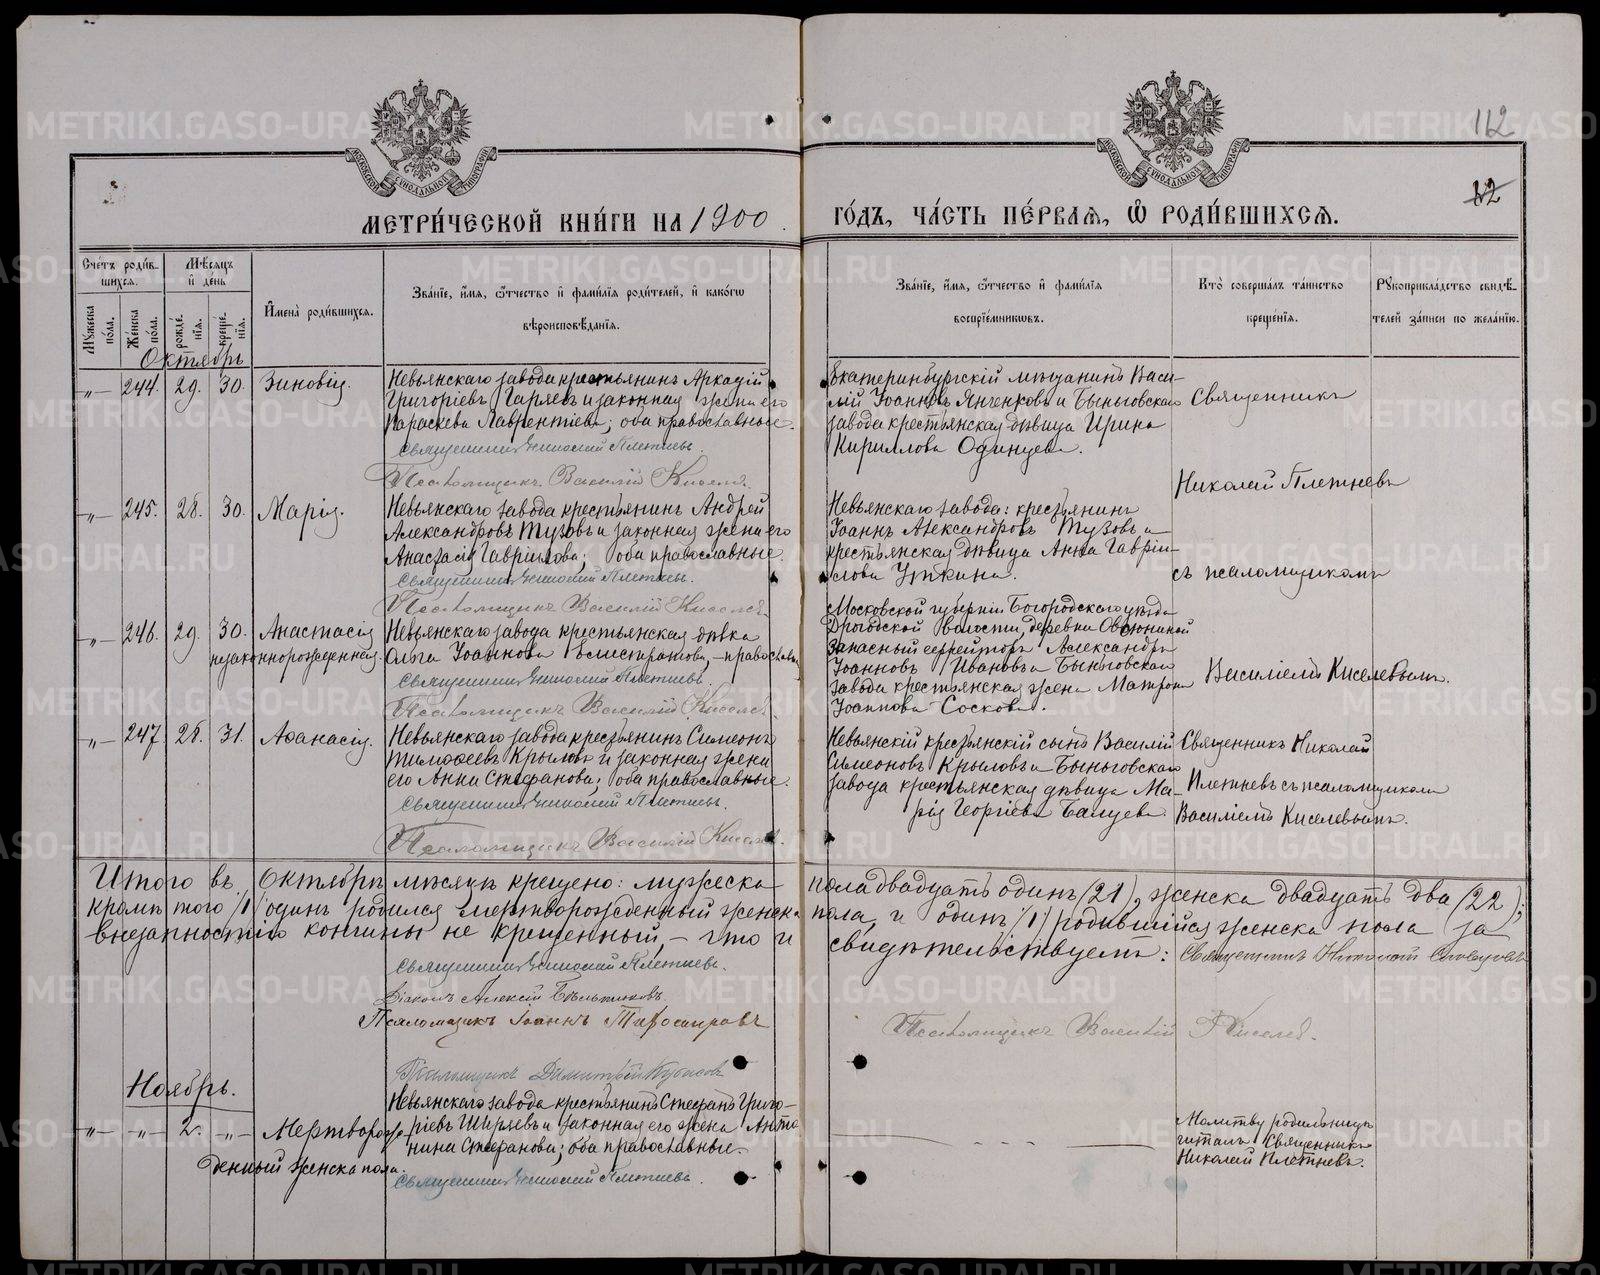 112
12
МЕТРИ́ЧЕСКОЙ КНИ́ГИ НА 1900
ГО́ДЪ, ЧА́СТЬ ПЕ́РВАЯ, Ѡ РОДИ́ВШИХСЯ.
Сче́тъ роди́в-
шихся.
Мѣ́сяцъ
и де́нь
Мꙋ́жеска
по́ла.
Же́нска
по́ла.
рожде́-
нїя.
креще́-
нїя.
Имена̀ роди́вшихся.
Зва́нїе, и́мя, ѻ҆́тчество и҆ фами́лїя роди́телей, и҆ како́гѡ
вѣроисповѣ́данїя.
Зва́нїе, и́мя, ѻ҆́тчество и҆ фами́лїя
воспрїе́мникѡвъ.
Кто̀ соверша́лъ та́инство
креще́нїя.
Рꙋкоприкла́дство свидѣ́-
телей за́писи по жела́нїю.
Октябрь
-„- 244. 29. 30. Зиновія.
Невьянскаго завода крестьянинъ Аркадій
Григоріевъ Гаряевъ и законная жена его
Параскева Лаврентіева; оба православные.
Священникъ Николай Плетневъ.
Псаломщикъ Василій Киселев.
Екатеринбургскій мѣщанинъ Васи-
лій Іоанновъ Янченковъ и Быньговскаго
завода крестьянская дѣвица Ирина
Кириллова Одинцева.
Священникъ
Николай Плетневъ
съ псаломщикомъ
Василіемъ Киселевымъ.
-„- 245. 28. 30. Марія.
Невьянскаго завода крестьянинъ Андрей
Александровъ Тузовъ и законная жена его
Анастасія Гавріилова; оба православные.
Священникъ Николай Плетневъ.
Псаломщикъ Василій Киселев
Невьянскаго завода: крестьянинъ
Іоаннъ Александровъ Тузовъ и
крестьянская дѣвица Анна Гавріи-
лова Уткина.
-„- 246. 29. 30. Анастасія
незаконнорожденная.
Невьянскаго завода крестьянская дѣвка
Ольга Іоаннова Елистратова, - православная
Священникъ Николай Плетневъ.
Псаломщикъ Василій Киселев.
Московской губерніи Богородскаго уѣзда
волости, деревни
Запасный ефрейторъ Александръ
Іоанновъ Ивановъ и Быньговскаго
завода крестьянская жена Матрона
Іоаннова Соскова.
-„- 247. 28. 31. Аѳанасія.
Невьянскаго завода крестьянинъ Симеонъ
Тимофеевъ Крыловъ и законная жена
его Анна Стефанова; оба православные.
Священникъ Николай Плетневъ.
Псаломщикъ Василій Киселев.
Невьянскій крестьянскій сынъ Василій
Симеоновъ Крыловъ и Быньговскаго
завода крестьянская дѣвица Ма-
рія Георгіева
Священникъ Николай
Плетневъ съ псаломщикомъ
Василіемъ Киселевымъ.
Итого въ Октябрѣ мѣсяцѣ крещено: мужеска пола двадцать одинъ (21), женска двадцать два (22);
кромѣ того /1/ одинъ родился мертворожденный женска пола, и одинъ /1/ родившійся женска пола за
внезапностію кончины не крещенный, - что и свидѣтельствуемъ:
Священникъ Николай Плетневъ.
Священникъ Николай
Діаконъ Алексій
Псаломщикъ Іоаннъ
Псаломщикъ Василій Киселев.
Псаломщикъ Димитрій
Ноябрь.
-„- -„- 2. -„- Мертворож-
денный женска пола.
Невьянскаго завода крестьянинъ Стефанъ Григо-
ріевъ Ширяевъ и законная его жена Анто-
нина Стефанова; оба православные.
Священникъ Николай Плетневъ.
Молитву родильницѣ
читалъ Священникъ
Николай Плетневъ.
METRIKI.GASO-URAL.RU